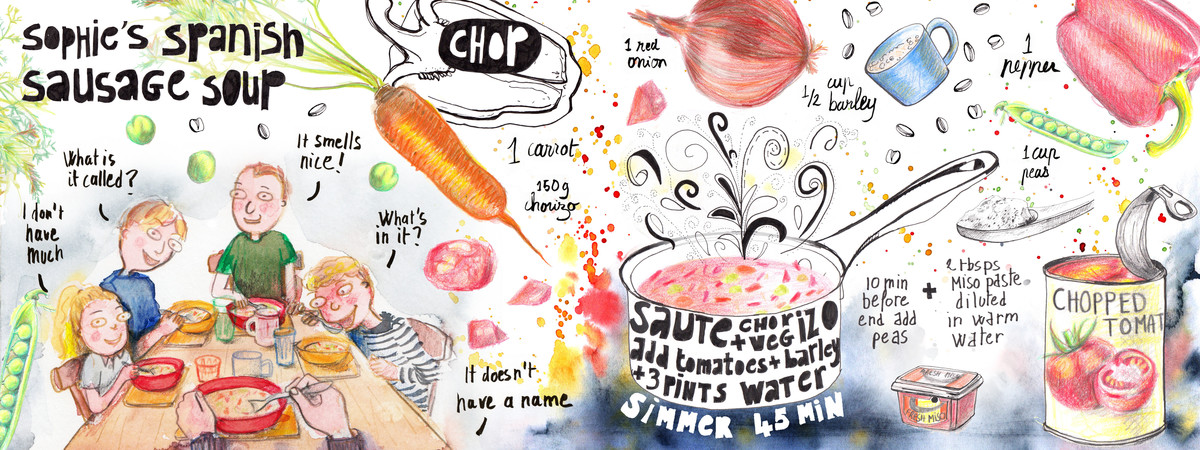 Sophie's Spanish
Sausage Soup
CHOP
1 carrot
150g
chorizo
What is
it called?
It smells
nice!
I don't
have
much
What's
in it?
It doesn't
have a name
1 red
onion
1/2 cup
barley
1
pepper
1 cup
peas
Saute chorizo
+ veg
add tomatoes + barley
+ 3 pints water
Simmer 45 min
10 min
before
end add
peas
+
2 tbsps
Miso paste
diluted
in warm
water
FRESH MISO
CHOPPED
TOMAT